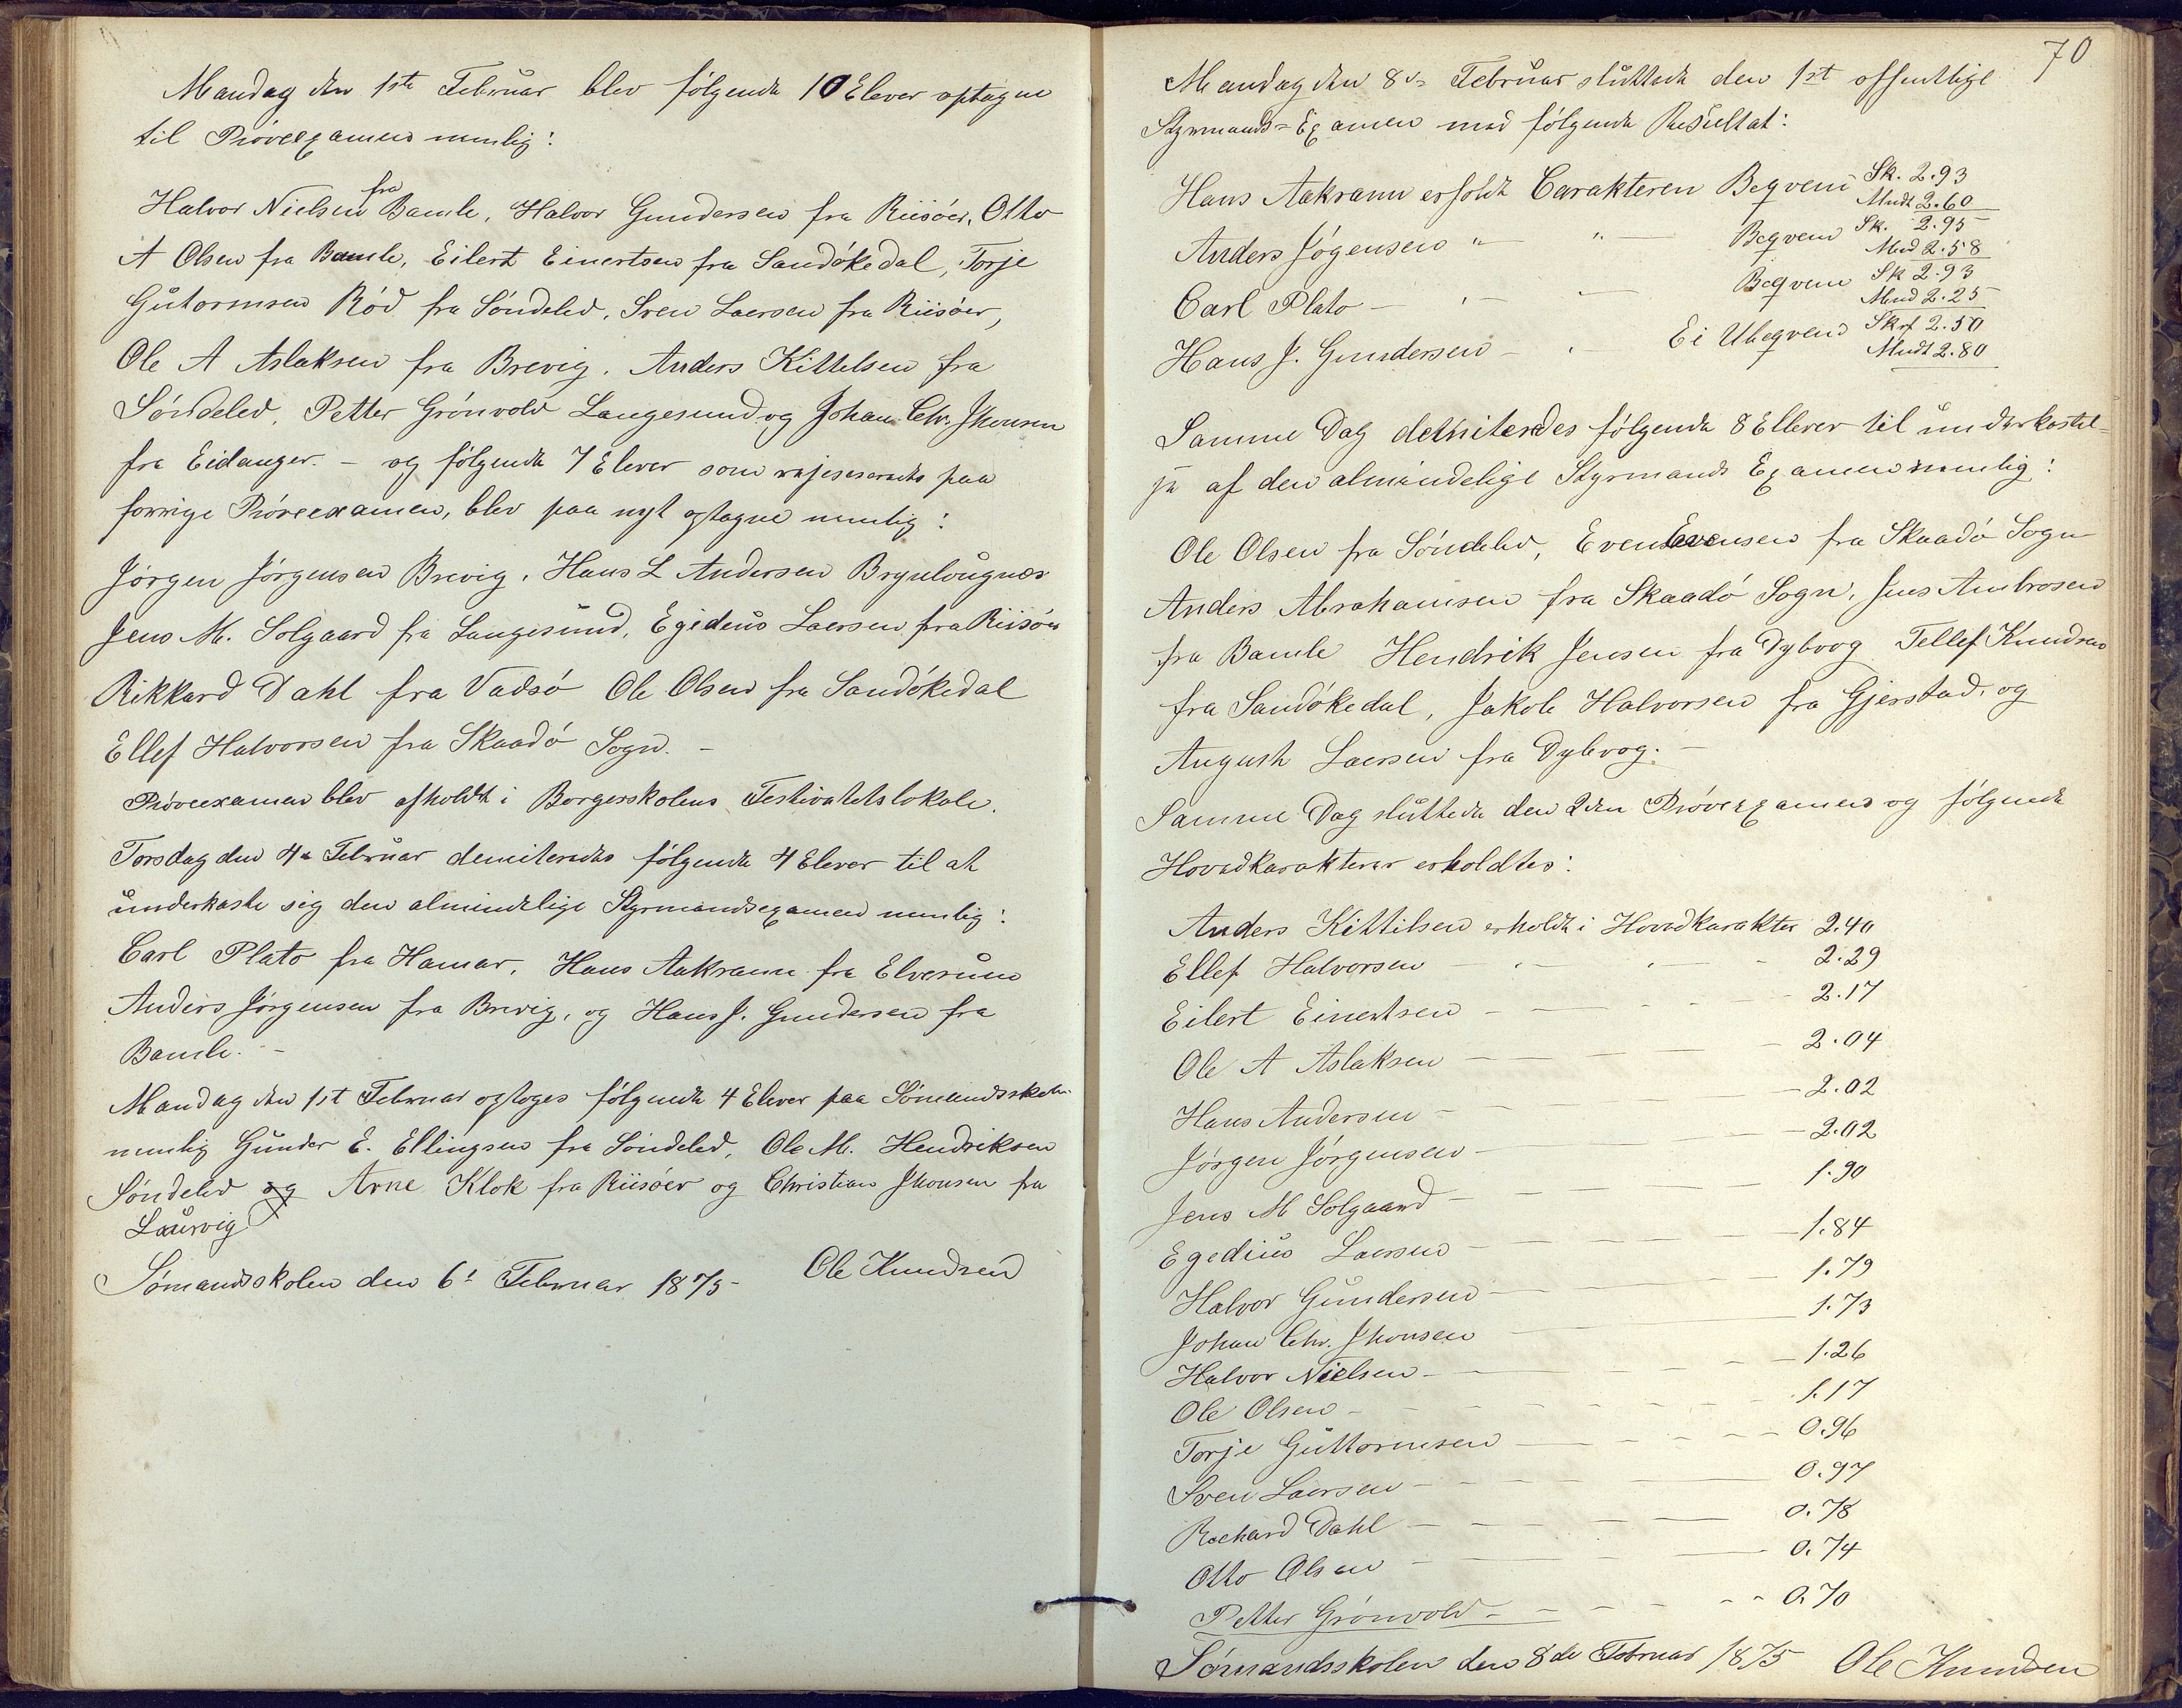 Mandag den 1ste Februar blev følgende 10 Elever optagne
til Prøveexamen nemlig:
Halvor Nielsen fra Bamle, Halvor Gundersen fra Riisöer, Otto
A Olsen fra Bamle, Eilert Einertsen fra Sandökedal, Torje
Gutormsen Röd fra Söndeled, Sven Laersen fra Riisöer,
Ole A Aslaksen fra Brevig, Anders Kittelsen fra
Söndeled, Petter Grönvold Langesund og Johan Chr. Jhonsen
fra Eidanger. – og følgende 7 Elever som rejeseredes paa
forrige Pröveexamen, blev paa nyt optagne nemlig:
Jörgen Jörgensen Brevig, Hans L Andersen
Jens M. Solgaard fra Langesund, Egedeus Laersen fra Riisöer
Rikkard Dahl fra Vadsö Ole Olsen fra Sandökedal
Ellef Halvorsen fra Skaadö Sogn. –
Pröveexamen blev afholdt i Borgerskolens Festivatetslokale.
Torsdag den 4de Februar demiteredes følgende 4 Elever til at
underkaste sig den almindelige Styrmandsexamen nemlig:
Carl Plato fra Hamar, Hans Aakrann fra Elverum
Anders Jörgensen fra Brevig, og Hans J. Gundersen fra
Bamle. –
Mandag den 1st Februar optoges følgende 4 Elever paa Sömandsskolen
nemlig Gunder E. Ellingsen fra Söndeled, Ole M. Hendriksen
Söndeled og Arne Klok fra Riisöer og Christian Jhonsen fra
Laurvig
Sömandsskolen den 6te Februar 1875 Ole Knudsen
70
Mandag den 8de Februar sluttede den 1st offentlige
Styrmands=Examen med følgende Resultat:
Hans Aakrann erholdt Carakteren Beqvem Sk. 2.93
Mudt 2.60
Anders Jögensen " " Beqvem Sk. 2.95
Mud 2.58
Carl Plato – " – Beqvem Sk 2.93
Mud 2.25
Hans J. Gundersen – " – Ei Ubeqvem Skrf 2.50
Mudt 2.80
Samme Dag demiteredes følgende 8 Ellever til underkastel=
se af den almindelige Styrmands Examen nemlig:
Ole Olsen fra Söndeled, Even Evensen fra Skaadö Sogn
Anders Abrahamsen fra Skaadö Sogn, Jens Ambrosen
fra Bamle Hendrik Jensen fra Dybvog Tellef Knudsen
fra Sandökedal, Jakob Halvorsen fra Gjerstad, og
August Laersen fra Dybvog. –
Samme Dag sluttede den 2den Pröveexamen og følgende
Hovedkarakterer erholdtes:
Anders Kittilsen erholdt i Hovedkarakter 2.40
Ellef Halvorsen – 2.29
Eilert Einertsen – 2.17
Ole A Aslaksen – 2.04
Hans Andersen – 2.02
Jörgen Jörgensen – 2.02
Jens M Solgaard – 1.90
Egedius Laersen – 1.84
Halvor Gundersen – 1.79
Johan Chr. Jhonsen – 1.73
Halvor Nielsen – 1.26
Ole Olsen – 1.17
Torje Guttormsen – 0.96
Sven Laersen – 0.97
Rechard Dahl – 0.78
Otto Olsen – 0.74
Petter Grönvold – 0.70
Sömandsskolen den 8de Februar 1875 Ole Knudsen